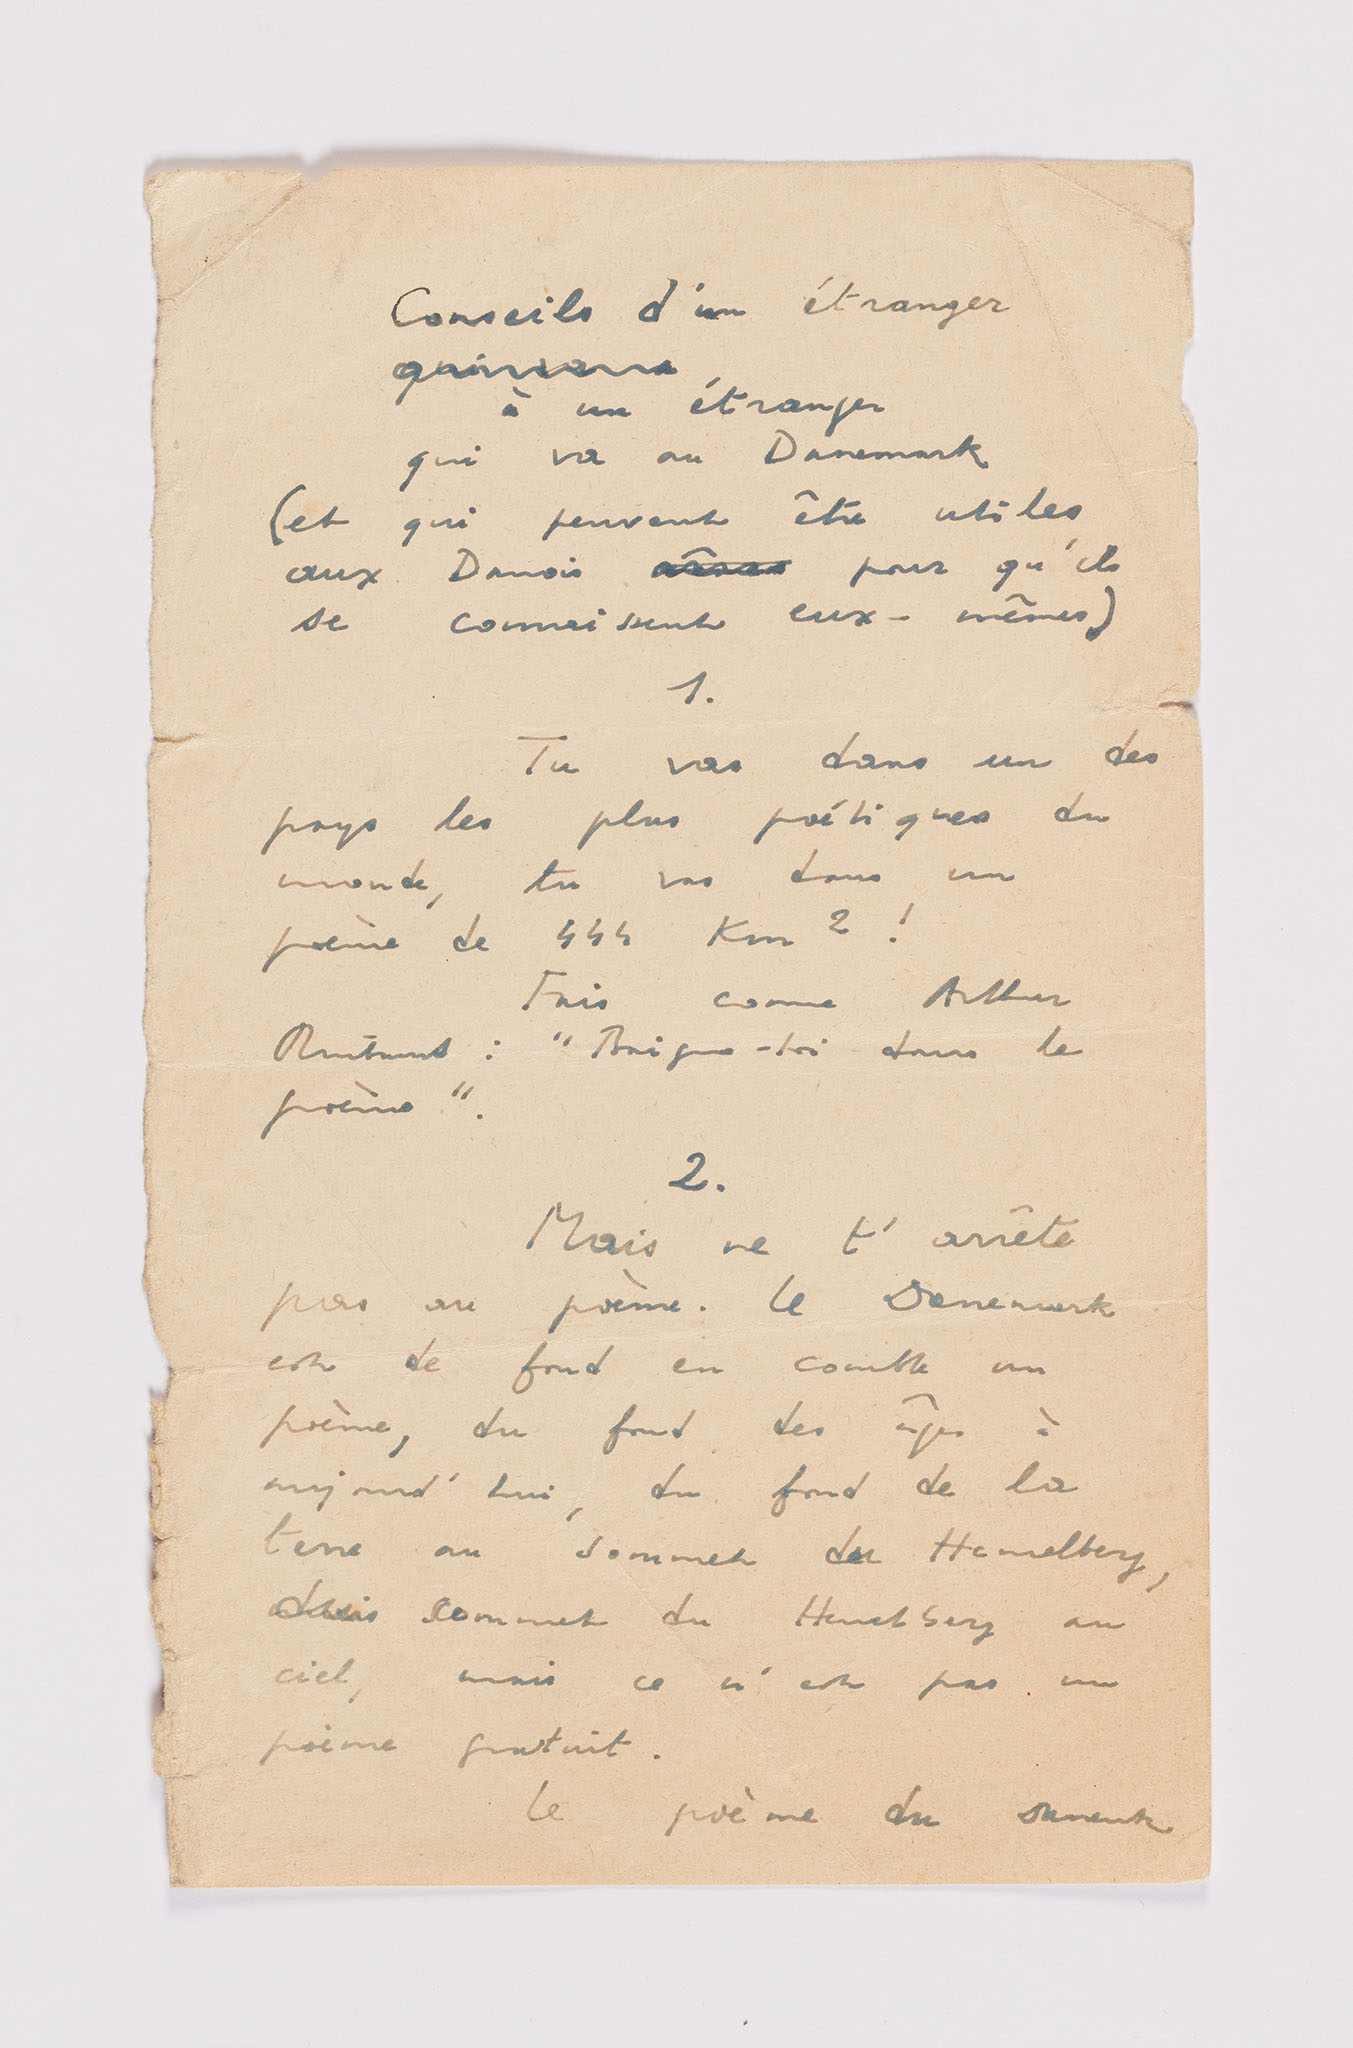 Conseils d'un étranger
à un étranger
qui va au Danemark
(et qui peuvent être utiles
aux Danois pour qu'ils
se connaissent eux-mêmes)
1.
Tu vas dans un des
pays les plus poétiques du
monde, tu vas dans un
poème de 444 Km² !
Fais comme Arthur
Rimbaud : "Baigne-toi dans le
poème".
2.
Mais ne t'arrête
pas au poème. Le Danemark
est de fond en comble un
poème, du fond des âges à
aujourd'hui, du fond de la
terre au sommet du Hemelberg,
sommet du Hemelberg au
ciel, mais ce n'est pas un
poème gratuit.
Le poème du Danemark